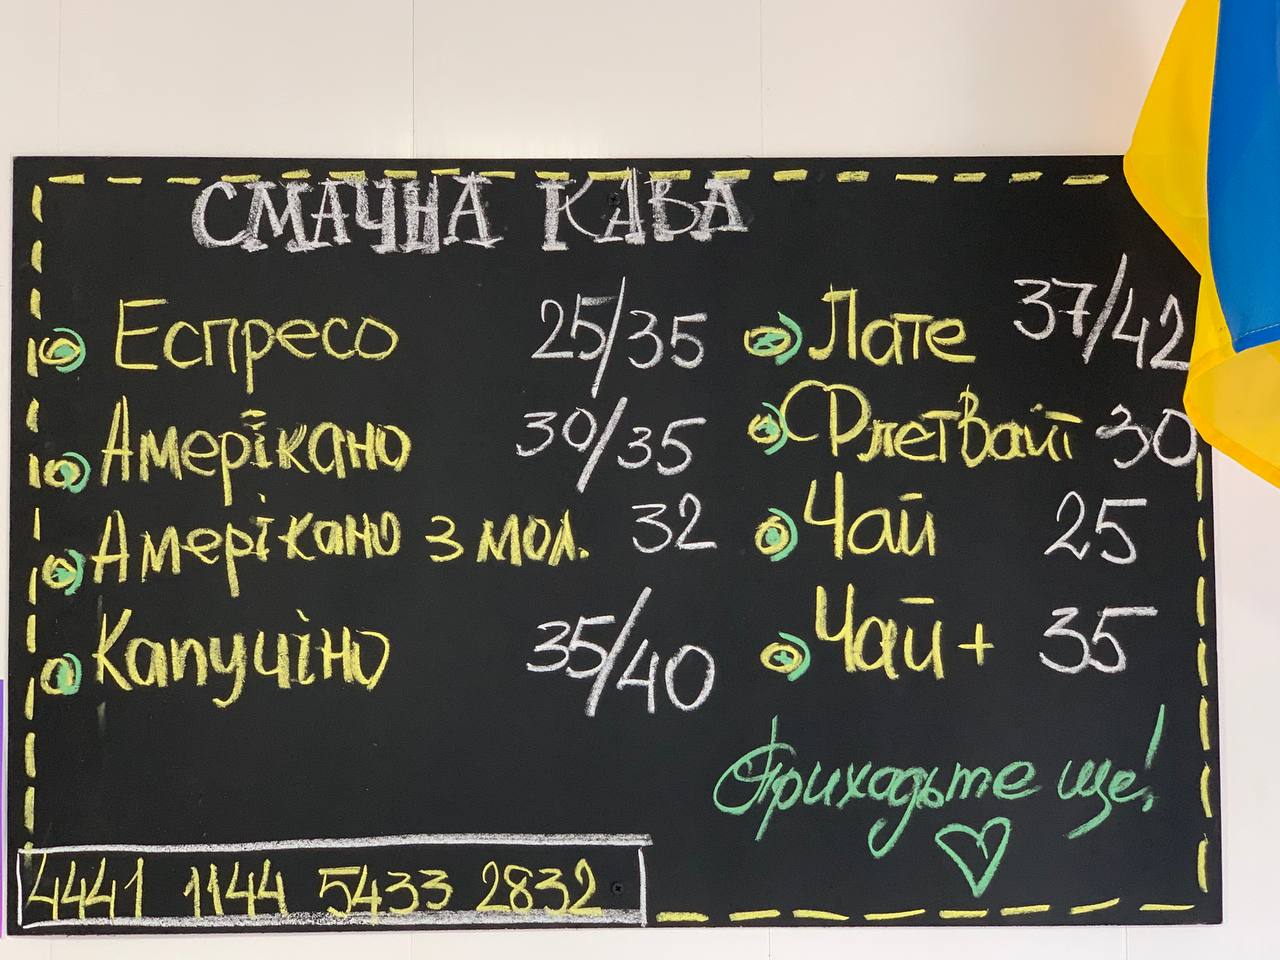 СМАЧНА КАВА
Еспресо 25/35
Амерікано 30/35
Амерікано з мол. 32
Капучіно 35/40
Лате 37/42
Флетвайт 30
Чай 25
Чай + 35
Приходьте ще!
4441 1144 5433 2832